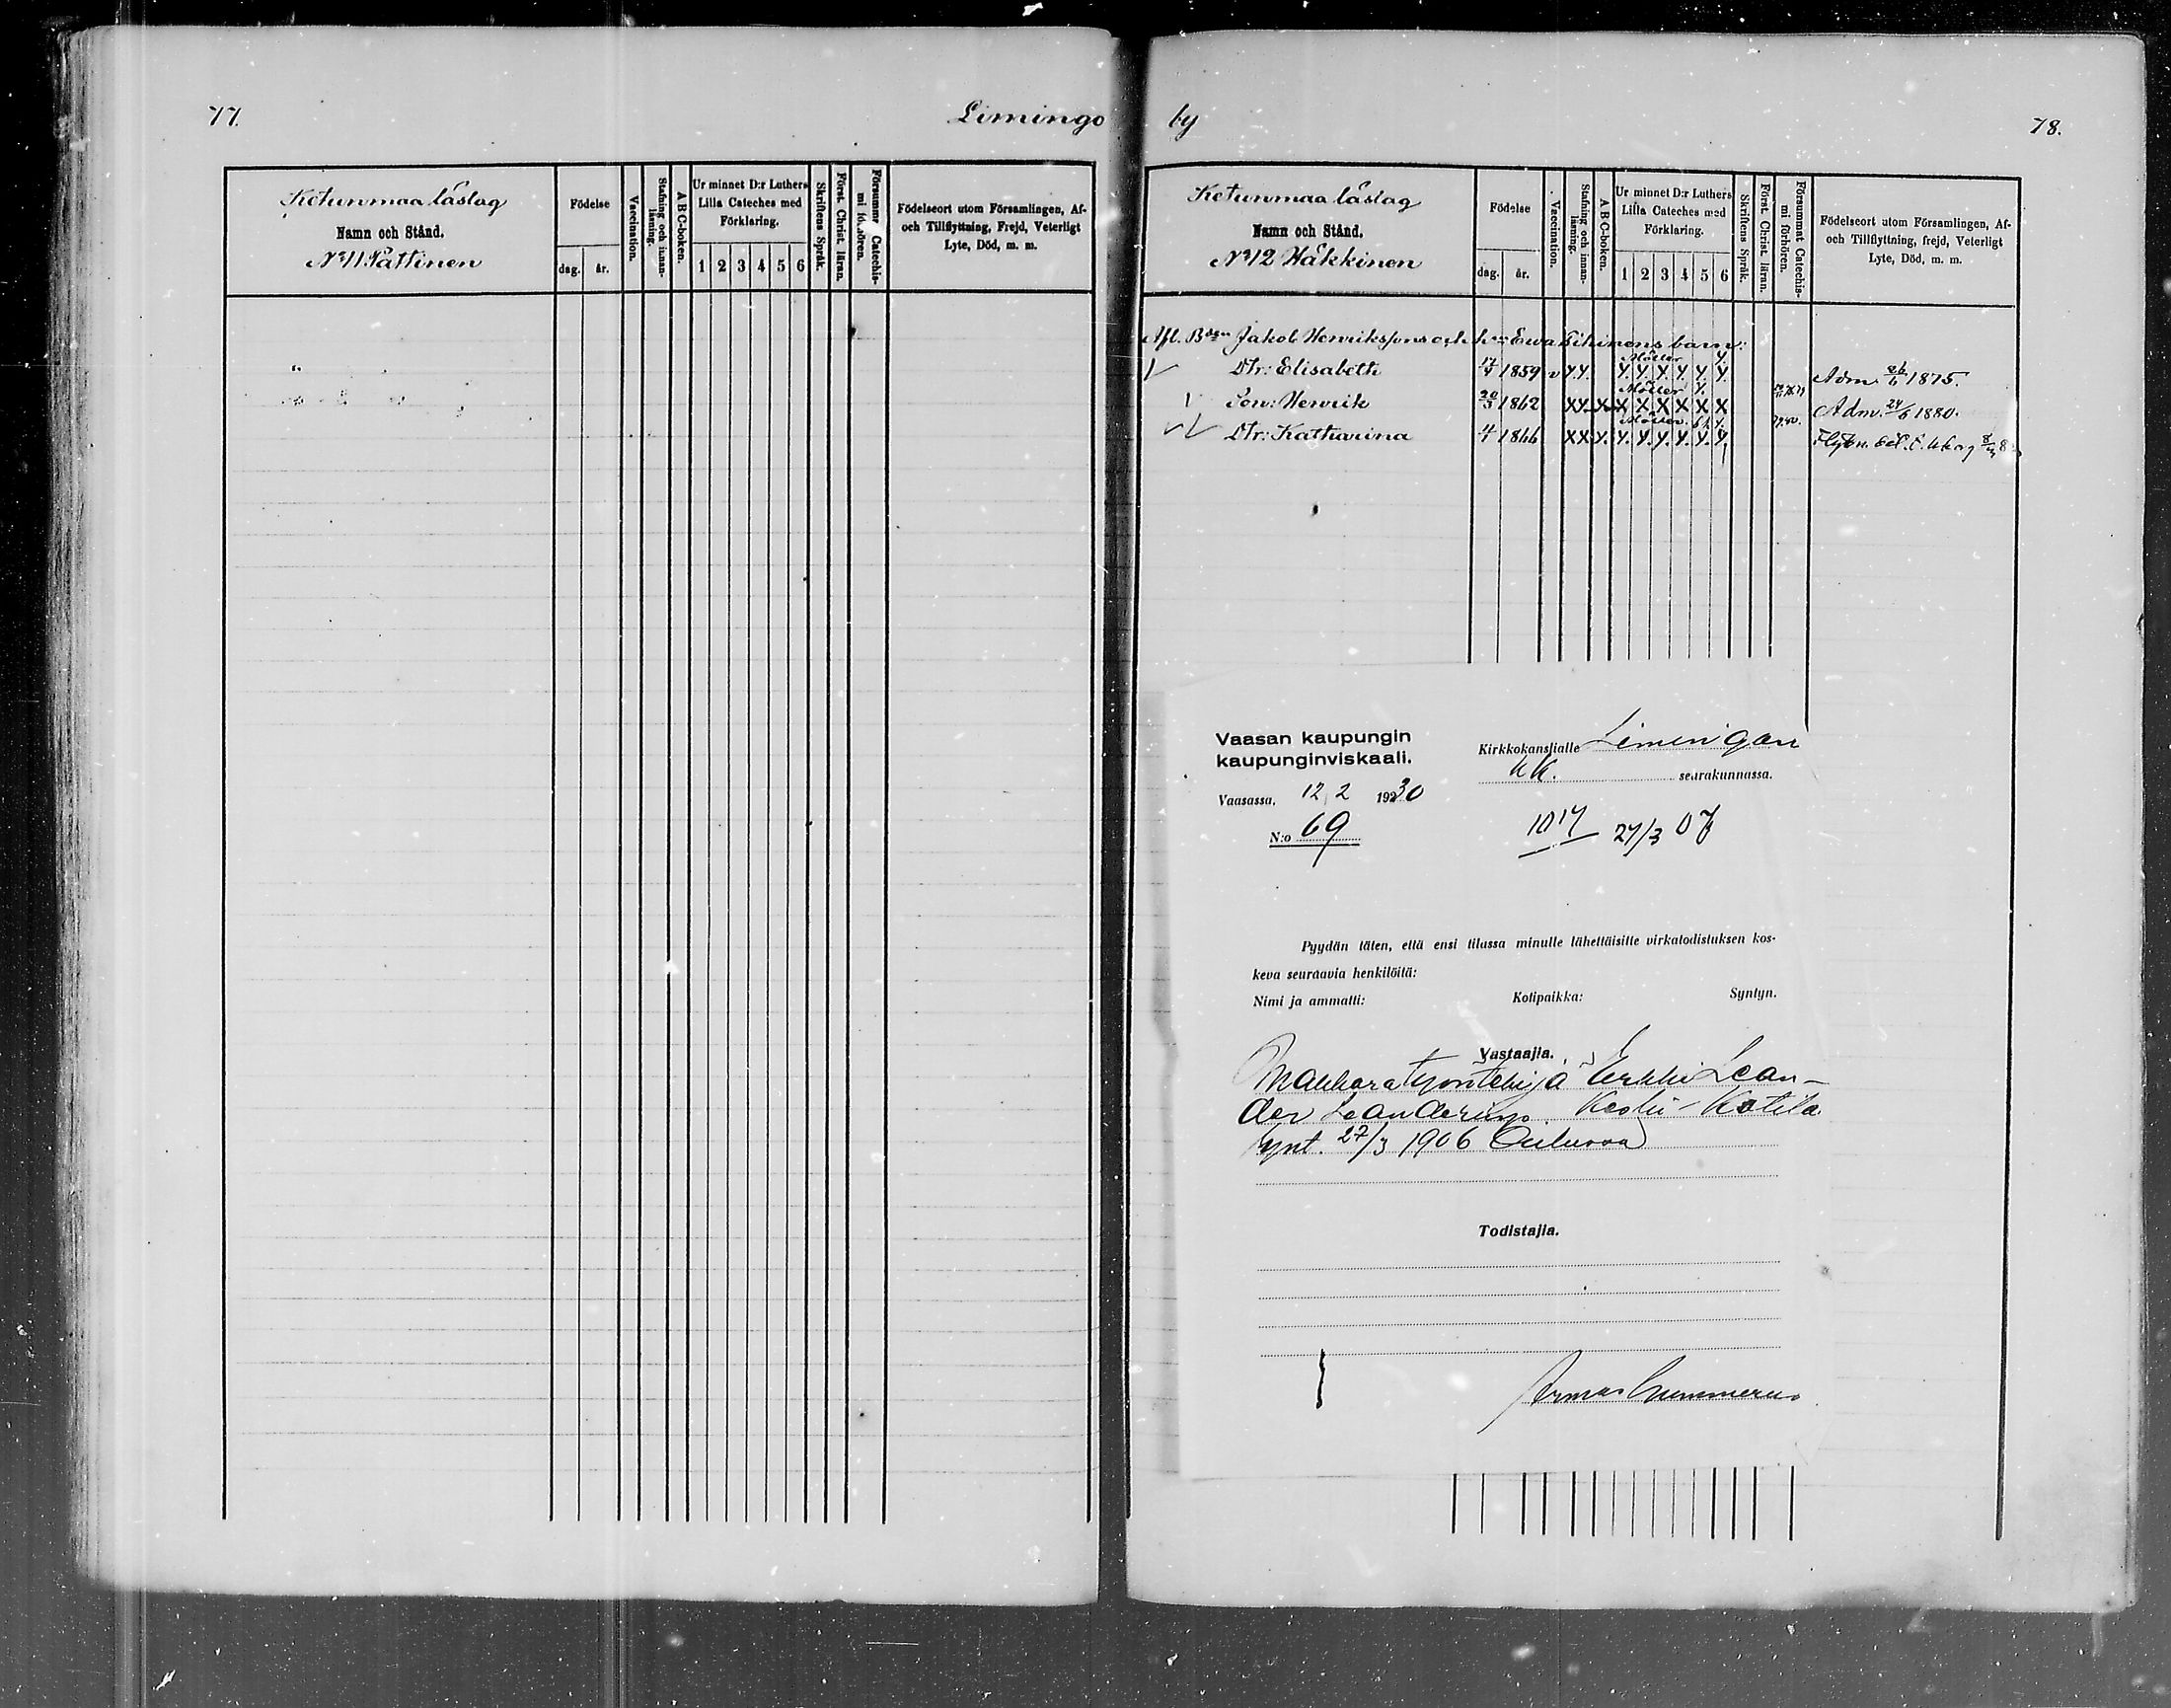 77.
Limingo
Ketunmaa läslag
Namn och Stånd.
No 11. Pattinen
Födelse
dag.
år.
Vaccination.
Stafning och innan-läsning.
A B C-boken.
Ur minnet D:r Luthers
Lilla Cateches med
Förklaring.
1 2 3 4 5 6
Skriftens Språk.
Först. Christ. läran.
Försummat Catechis-
mi förhören.
Födelseort utom Församlingen, Af-
och Tillflyttning, Frejd, Veterligt
Lyte, Död, m. m.
by
78.
Ketunmaa läslag
Namn och Stånd.
No 12 Häkkinen
Födelse
dag.
år.
Vaccination.
Stafning och innan-läsning.
A B C-boken.
Ur minnet D:r Luthers
Lilla Cateches med
Förklaring.
1 2 3 4 5 6
Skriftens Språk.
Först. Christ. läran.
Försummat Catechis-
mi förhören.
Födelseort utom Församlingen, Af-
och Tillflyttning, frejd, Veterligt
Lyte, Död, m. m.
Afl. Jakob Henrikssons och Ewa barn:
Dtr: Elisabeth 1859 Adm. 1875.
Son: Henrik 20/3 1862 Adm. 24/6 1880.
Dtr: Katharina 1866
Vaasan kaupungin
kaupunginviskaali.
Vaasassa, 12/2 1930
N:o 69
Kirkkokanslialle Limingan
kk. seurakunnassa.
27/3 07
Pyydän täten, että ensi tilassa minulle lähettäisitte virkatodistuksen kos-
keva seuraavia henkilöitä:
Nimi ja ammatti: Kotipaikka: Syntyn.
Vastaajia.
Makkaratyöntekijä Erkki Lean-
der Leanderinp. Keski-Kotila
synt. 27/3 1906 Oulussa
Todistajia.
Armas Gummerus